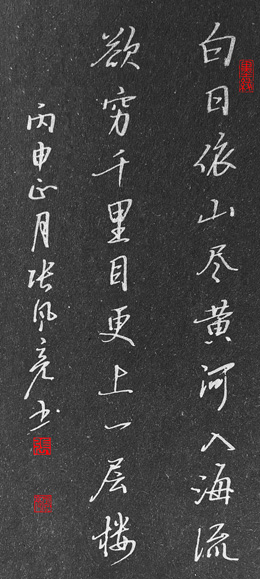 白日依山尽黄河入海流
欲穷千里目更上一层楼
丙申正月张风亮书